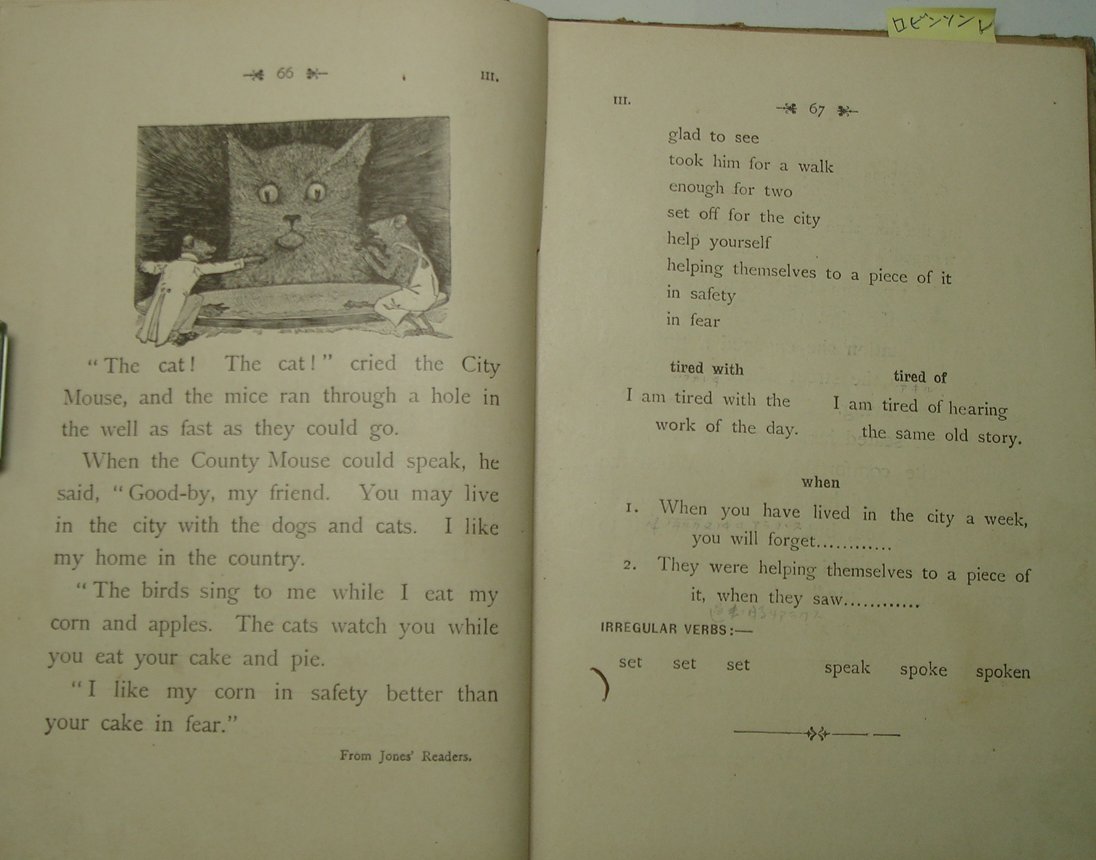 66
III.
"The cat! The cat!" cried the City
Mouse, and the mice ran through a hole in
the well as fast as they could go.
When the County Mouse could speak, he
said, "Good-by, my friend. You may live
in the city with the dogs and cats. I like
my home in the country.
"The birds sing to me while I eat my
corn and apples. The cats watch you while
you eat your cake and pie.
"I like my corn in safety better than
your cake in fear."
From Jones' Readers.
ロビンソン
III.
67
glad to see
took him for a walk
enough for two
set off for the city
help yourself
helping themselves to a piece of it
in safety
in fear
tired with
I am tired with the
work of the day.
tired of
I am tired of hearing
the same old story.
when
1. When you have lived in the city a week,
you will forget............
2. They were helping themselves to a piece of
it, when they saw............
IRREGULAR VERBS:—
set set set speak spoke spoken